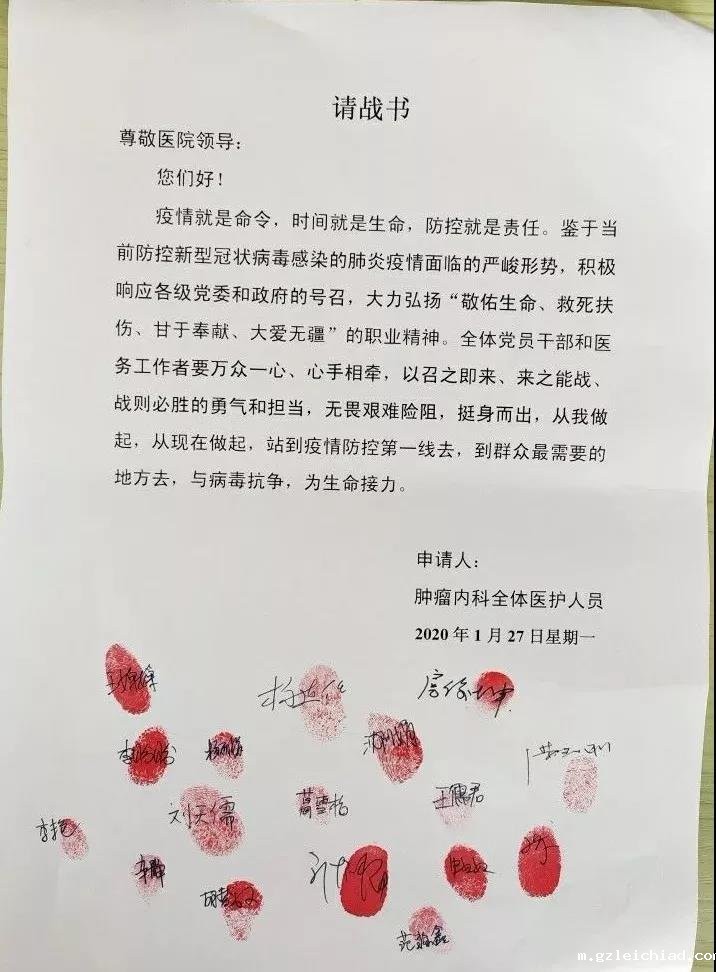 请战书
尊敬医院领导：
您们好！
疫情就是命令，时间就是生命，防控就是责任。鉴于当
前防控新型冠状病毒感染的肺炎疫情面临的严峻形势，积极
响应各级党委和政府的号召，大力弘扬“敬佑生命、救死扶
伤、甘于奉献、大爱无疆”的职业精神。全体党员干部和医
务工作者要万众一心、心手相牵，以召之即来、来之能战、
战则必胜的勇气和担当，无畏艰难险阻，挺身而出，从我做
起，从现在做起，站到疫情防控第一线去，到群众最需要的
地方去，与病毒抗争，为生命接力。
申请人：
肿瘤内科全体医护人员
2020年1月27日星期一
刘天儒
葛雪松
李艳
m.gzleichiad.com